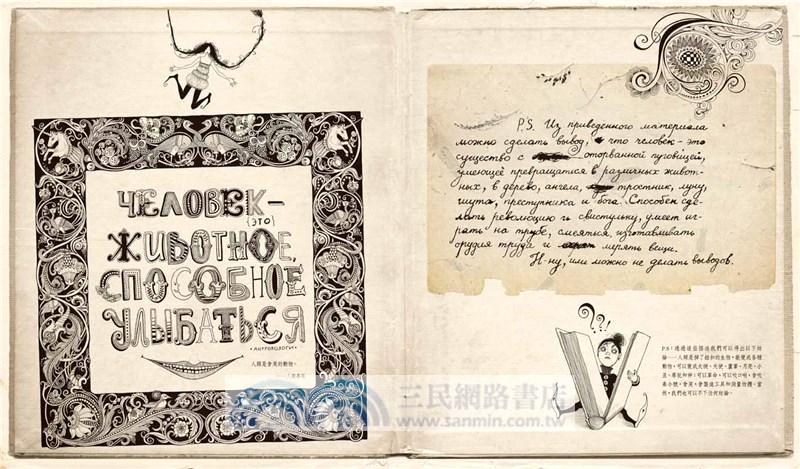 ЧЕЛОВЕК —
{ЭТО}
ЖИВОТНОЕ,
СПОСОБНОЕ
УЛЫБАТЬСЯ
• АНТРОПОЛОГИ •
人類是會笑的動物。
P.S. Из приведенного материала
можно сделать вывод, что человек – это
существо с оторванной пуговицей,
умеющее превращатся в различных живот-
ных, в дерево, ангела, тростник, луну,
шута, преступника и бога. Способен сде-
лать революцию и свистульку, умеет иг-
рать на трубе, смеяться, изготавливать
орудия труда и мерять вещи.
Н-ну, или можно не делать выводов.
??!
P.S：透過這些描述我們可以得出以下結
論——人類是掉了鈕扣的生物，能變成各種
動物，可以變成大樹、天使、蘆葦、月亮、小
丑、罪犯和神；可以革命，可以吹口哨，會吹
奏小號，會笑，會製造工具和測量物體。當
然，我們也可以不下任何結論。
三民網路書店
www.sanmin.com.tw